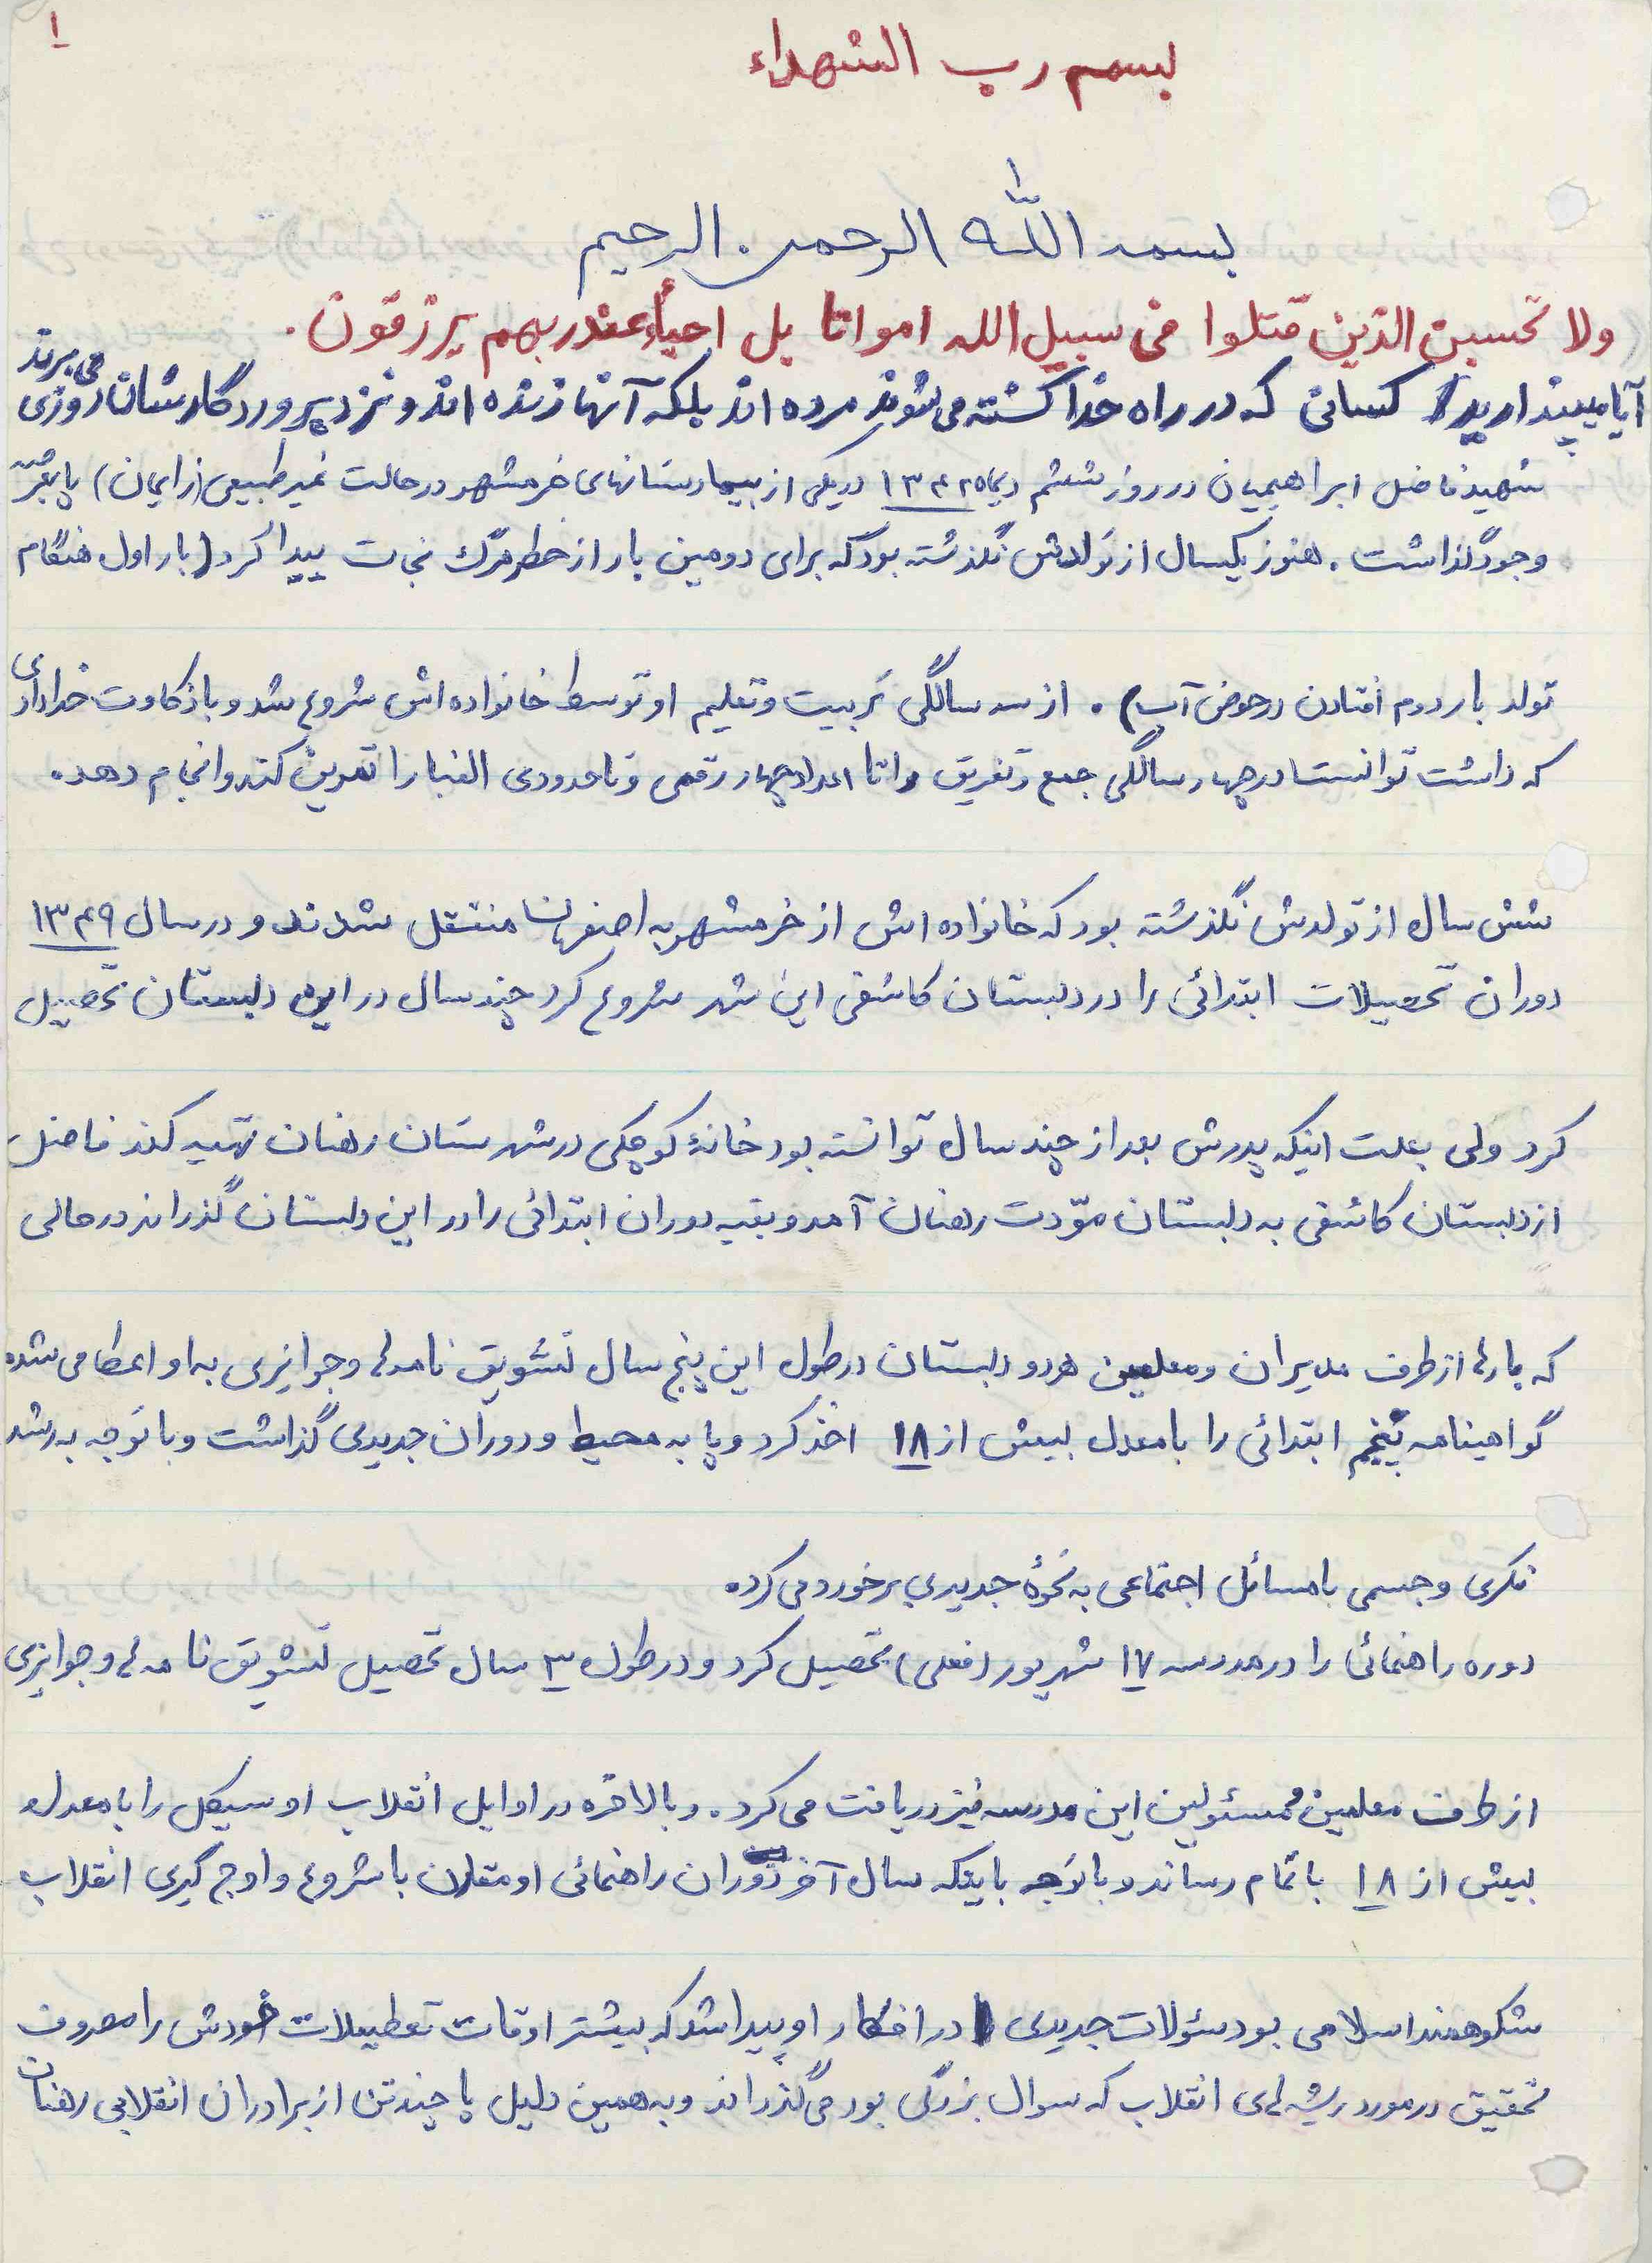 ۱
بسم رب الشهداء
بسم الله الرحمن الرحیم
ولا تحسبن الذین قتلوا فی سبیل الله امواتا بل احیاء عند ربهم یرزقون.
آیا میپندارید کسانی که در راه خدا کشته می‌شوند مرده اند بلکه آنها زنده اند و نزد پروردگارشان روزی می‌برند
شهید فاضل ابراهیمیان در روز ششم دیماه ۱۳۴۲ در یکی از بیمارستانهای خرمشهر در حالت غیر طبیعی (زایمان) پا بعرصه
وجود گذاشت. هنوز یکسال از تولدش نگذشته بود که برای دومین بار از خطر مرگ نجات پیدا کرد (بار اول هنگام
تولد بار دوم افتادن در حوض آب). از سه سالگی تربیت و تعلیم او توسط خانواده اش شروع شد و با ذکاوت خدادادی
که داشت توانست در چهار سالگی جمع و تفریق را تا اعداد چهار رقمی و تا حدودی الفبا را تمرین کند و انجام دهد.
شش سال از تولدش نگذشته بود که خانواده اش از خرمشهر به اصفهان منتقل شدند و در سال ۱۳۴۹
دوران تحصیلات ابتدائی را در دبستان کاشفی این شهر شروع کرد چند سال در این دبستان تحصیل
کرد ولی بعلت اینکه پدرش بعد از چند سال توانسته بود خانهٔ کوچکی در شهرستان رهنان تهیه کند فاضل
از دبستان کاشفی به دبستان مودت رهنان آمد و بقیه دوران ابتدائی را در این دبستان گذراند در حالی
که بارها از طرف مدیران و معلمین هر دو دبستان در طول این پنج سال تشویق نامه‌ها و جوایزی به او اعطا می‌شده
گواهینامه پنجم ابتدائی را با معدل بیش از ۱۸ اخذ کرد و پا به محیط و دوران جدیدی گذاشت و با توجه به رشد
فکری و جسمی با مسائل اجتماعی به نحوهٔ جدیدی برخورد می‌کرد.
دوره راهنمائی را در مدرسه ۱۷ شهریور (فعلی) تحصیل کرد و در طول ۳ سال تحصیل تشویق نامه‌ها و جوایزی
از طرف معلمین و مسئولین این مدرسه نیز دریافت می‌کرد. و بالاخره در اوایل انقلاب او سیکل را با معدل
بیش از ۱۸ باتمام رساند و با توجه باینکه سال آخر دوران راهنمائی او مقارن با شروع و اوج گیری انقلاب
شکوهمند اسلامی بود سئولات جدیدی در افکار او پیدا شد که بیشتر اوقات تعطیلات خودش را مصروف
تحقیق در مورد ریشه‌های انقلاب که سوال بزرگی بود می‌گذراند و به همین دلیل با چند تن از برادران انقلابی رهنان